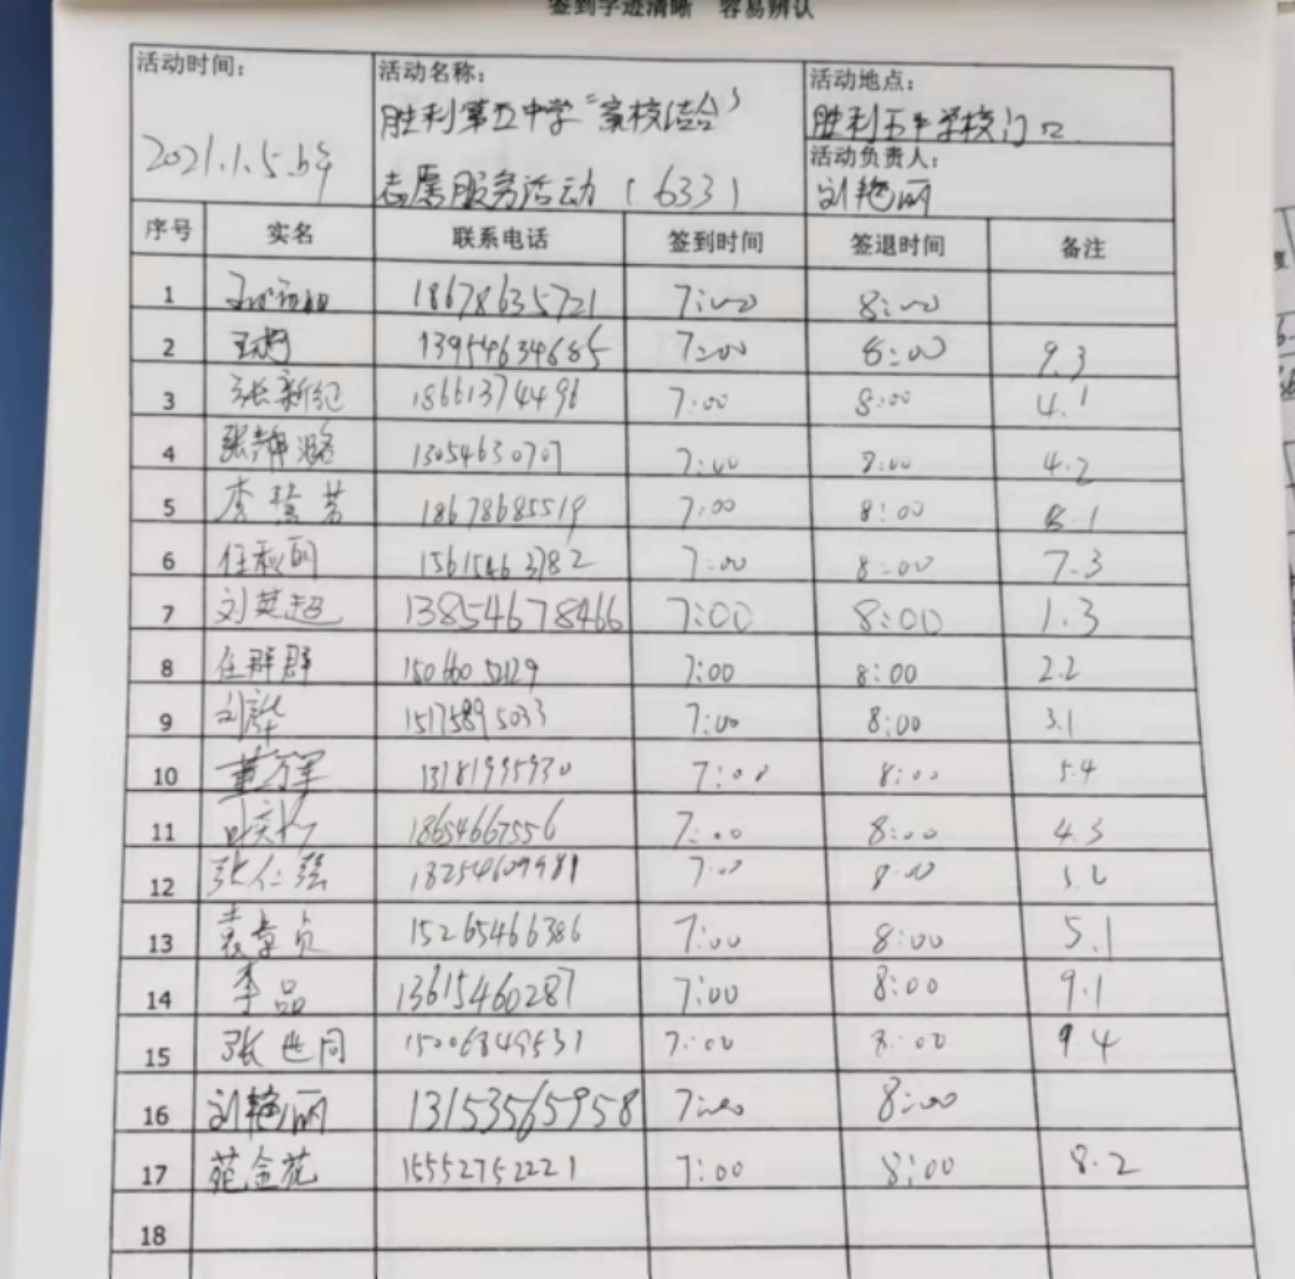 签到字迹清晰 容易辨认
活动时间：
2021.1.5
活动名称：
胜利第五中学“家校结合”
志愿服务活动（633）
活动地点：
胜利五中学校门口
活动负责人：
刘艳丽
序号 实名 联系电话 签到时间 签退时间 备注
1 18678635721 7:00 8:00
2 13954634685 7:00 8:00 9.3
3 张新纪 18661374496 7:00 8:00 4.1
4 张静潞 13054630707 7:00 8:00 4.2
5 李 芳 18678685519 7:00 8:00 8.1
6 任秋丽 15615463782 7:00 8:00 7.3
7 刘英超 13854678466 7:00 8:00 1.3
8 任群群 15066052129 7:00 8:00 2.2
9 刘 15175895033 7:00 8:00 3.1
10 董万军 13181995930 7:00 8:00 5.4
11 18654667556 7:00 8:00 4.3
12 张仁强 18254609981 7:00 8:00
13 袁章贞 15265466386 7:00 8:00 5.1
14 李品 13615460287 7:00 8:00 9.1
15 张世同 15006849531 7:00 8:00 9.4
16 刘艳丽 13153565958 7:00 8:00
17 苑金花 15552752221 7:00 8:00 8.2
18